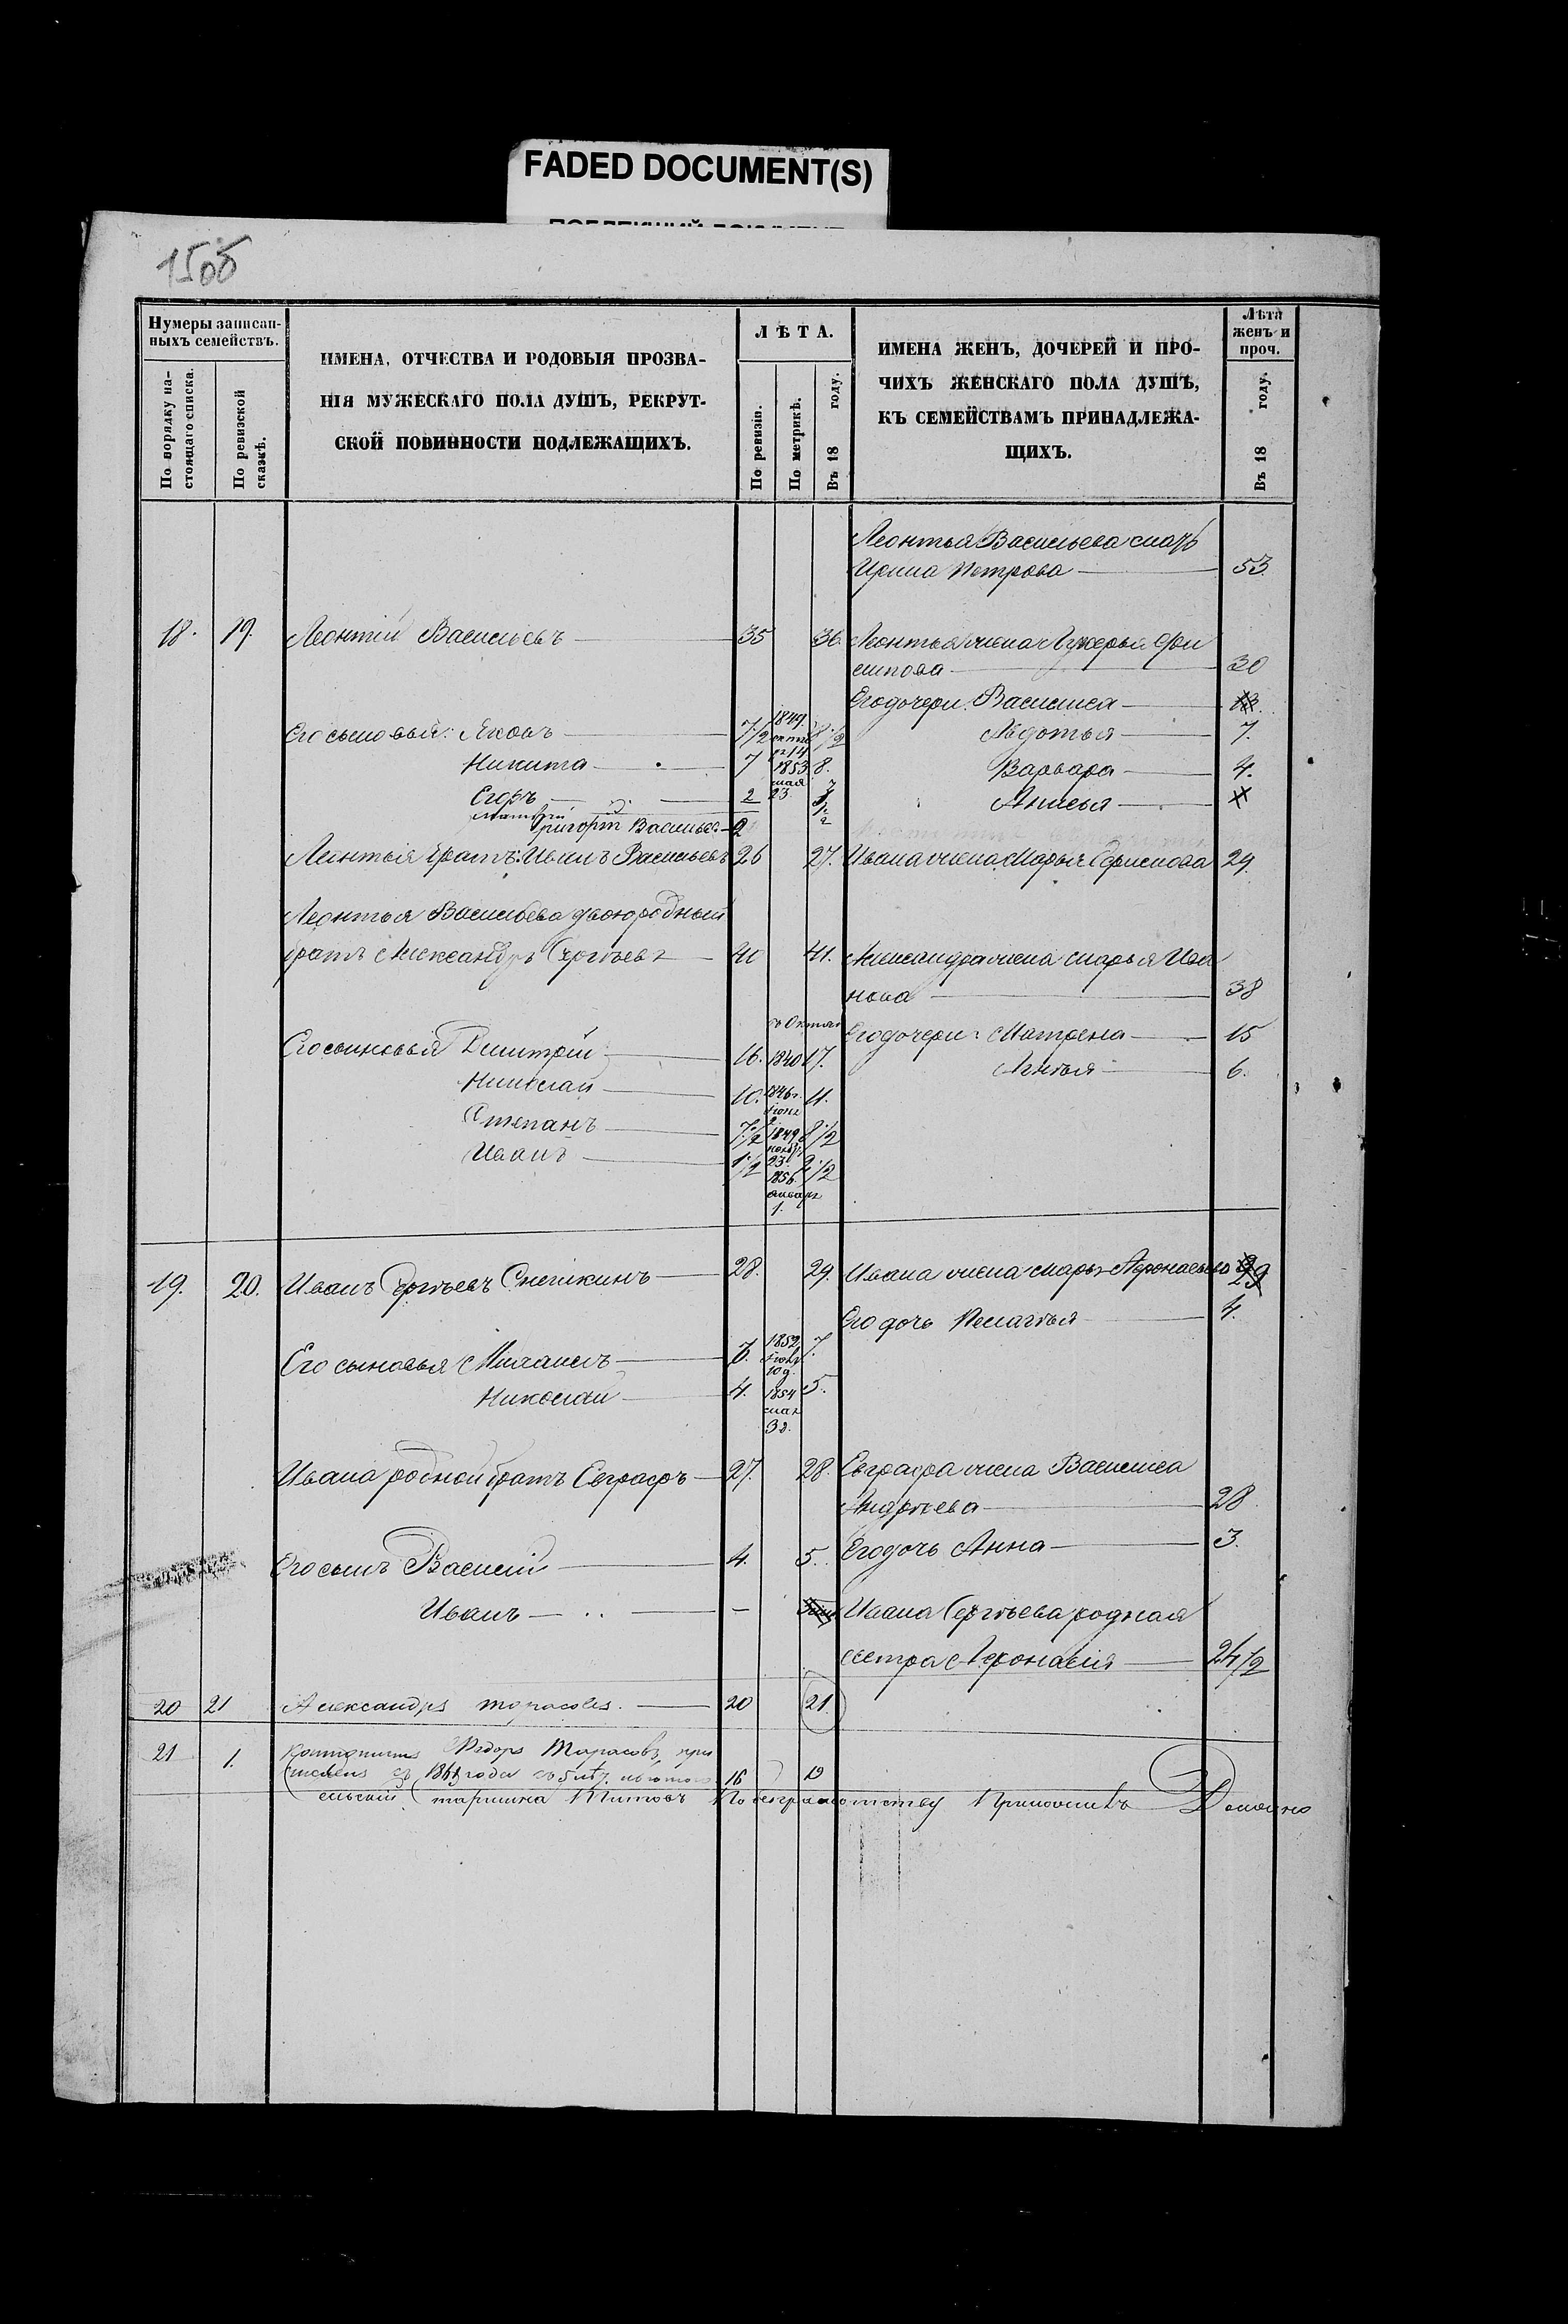 FADED DOCUMENT(S)
1506
Нумеры записан-
ныхъ семействъ.
По порядку на-
стоящаго списка.
По ревизской
сказкѣ.
ИМЕНА, ОТЧЕСТВА И РОДОВЫЯ ПРОЗВА-
НІЯ МУЖЕСКАГО ПОЛА ДУШЪ, РЕКРУТ-
СКОЙ ПОВИННОСТИ ПОДЛЕЖАЩИХЪ.
ЛѢТА.
По ревизіи.
По метрикѣ.
Въ 18 году.
ИМЕНА ЖЕНЪ, ДОЧЕРЕЙ И ПРО-
ЧИХЪ ЖЕНСКАГО ПОЛА ДУШЪ,
КЪ СЕМЕЙСТВАМЪ ПРИНАДЛЕЖА-
ЩИХЪ.
Лѣта
женъ и
проч.
Въ 18 году.
Леонтья Васильева мать
Ирина Петрова 53.
18. 19. Леонтій Васильевъ 35 36. Леонтья жена Лукерья Фи
липова 30
Его дочери: Василиса
Его сыновья: Яковъ 7 1/2 1849. 8 1/2 Авдотья 7.
Никита 7 8. Варвара 4.
Егоръ 2 1853 мая 23 Анисья
Григорій Васильев 2
Леонтья братъ: Иванъ Васильевъ 26 27. Ивана жена Марья 29.
Леонтья Васильева двоюродный
братъ Александръ Сергѣевъ 40 41. Александра жена Марья Ива
нова 38
Его сыновья Дмитрій 16. 1840 17. Его дочери: Матрена 15
Николай 10. 1846 г. 11. Агафья 6.
Степанъ 7 1/2 1849 8 1/2
Иванъ 1 1/2 23 2 1/2
1856
январь
1.
19. 20. Иванъ Сергѣевъ Снешкинъ 28. 29. Ивана жена Марья Афонасьева 29
Его дочь Пелагѣя 4.
Его сыновья Михаилъ 1852 7.
Николай 4. 1854 5.
мая
Ивана родной братъ Евграфъ 27. 28. Евграфа жена Василиса
Андрѣева 28
Его сынъ Василій 4. 5. Его дочь Анна 3.
Иванъ — Ивана Сергѣева родная
сестра Афонасія 24 1/2
20 21 Александръ Тарасовъ. 20 21.
21 1. Федоръ Тарасовъ, при
16 19
сельскій старшина Титовъ